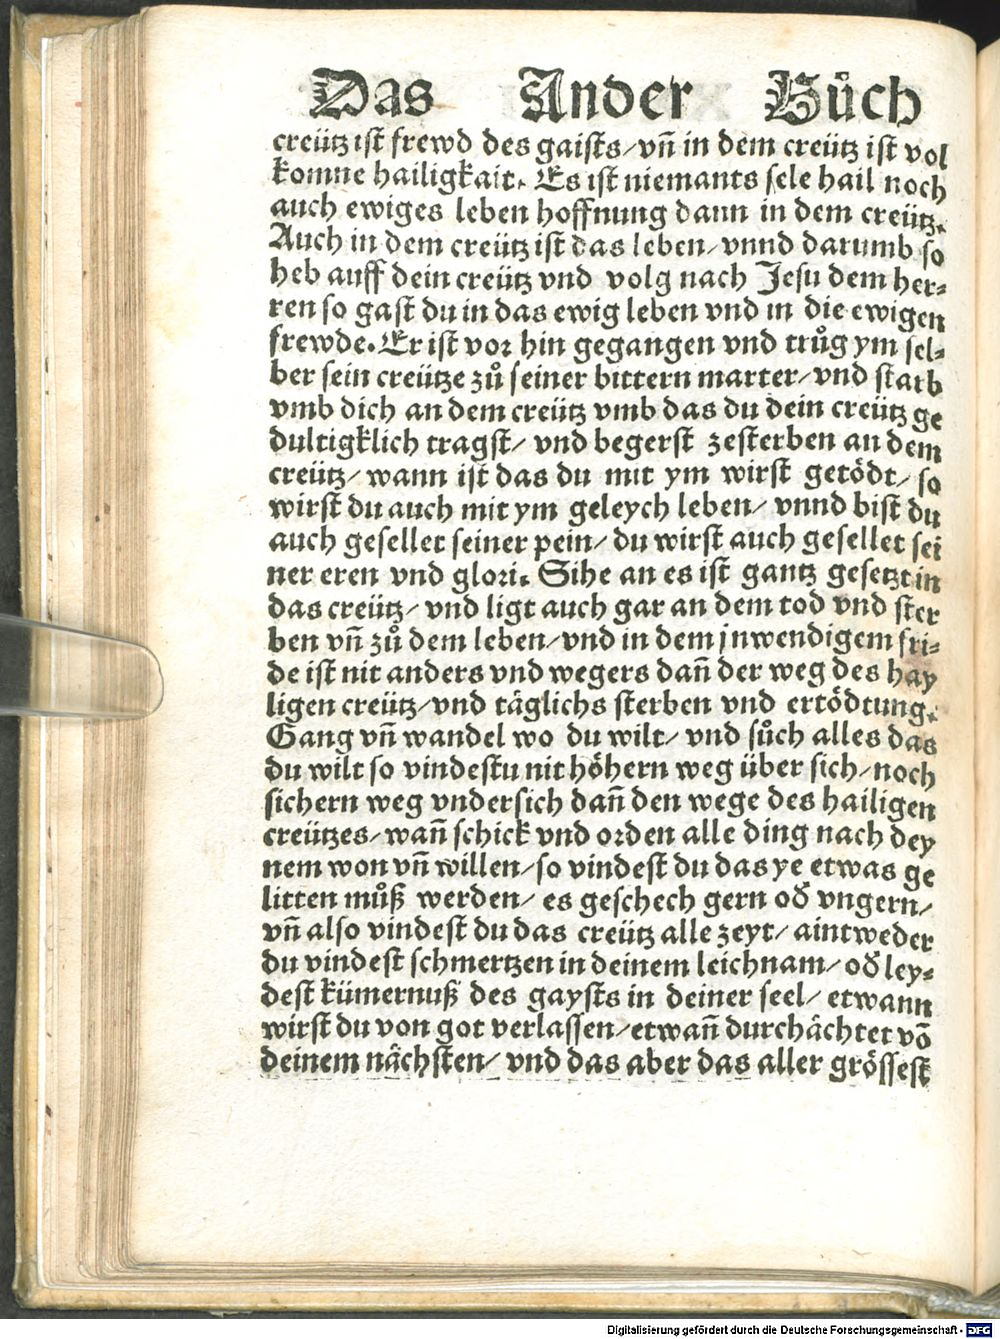 Das Ander Bůch
creütz ist frewd des gaists/ vñ in dem creütz ist vol
komne hailigkait. Es ist niemants sele hail noch
auch ewiges leben hoffnung dann in dem creütz.
Auch in dem creütz ist das leben/ vnnd darumb so
heb auff dein creütz vnd volg nach Jesu dem her-
ren so gast du in das ewig leben vnd in die ewigen
frewde. Er ist vor hin gegangen vnd trůg ym sel-
ber sein creütze zů seiner bittern marter/ vnd starb
vmb dich an dem creütz vmb das du dein creütz ge
dultigklich tragst/ vnd begerst zesterben an dem
creütz/ wann ist das du mit ym wirst getödt/ so
wirst du auch mit ym geleych leben/ vnnd bist du
auch gesellet seiner pein/ du wirst auch gesellet sei
ner eren vnd glori. Sihe an es ist gantz gesetzt in
das creütz/ vnd ligt auch gar an dem tod vnd ster
ben vñ zů dem leben/ vnd in dem jnwendigem fri-
de ist nit anders vnd wegers dañ der weg des hay
ligen creütz/ vnd täglichs sterben vnd ertödtung.
Gang vñ wandel wo du wilt/ vnd sůch alles das
du wilt so vindestu nit höhern weg über sich/ noch
sichern weg vndersich dañ den wege des hailigen
creützes/ wañ schick vnd orden alle ding nach dey
nem won vñ willen/ so vindest du das ye etwas ge
litten můß werden/ es geschech gern od̕ vngern/
vñ also vindest du das creütz alle zeyt/ aintweder
du vindest schmertzen in deinem leichnam/ od̕ ley-
dest kümernuß des gaysts in deiner seel/ etwann
wirst du von got verlassen/ etwañ durchächtet võ
deinem nächsten/ vnd das aber das aller grössest
Digitalisierung gefördert durch die Deutsche Forschungsgemeinschaft - DFG